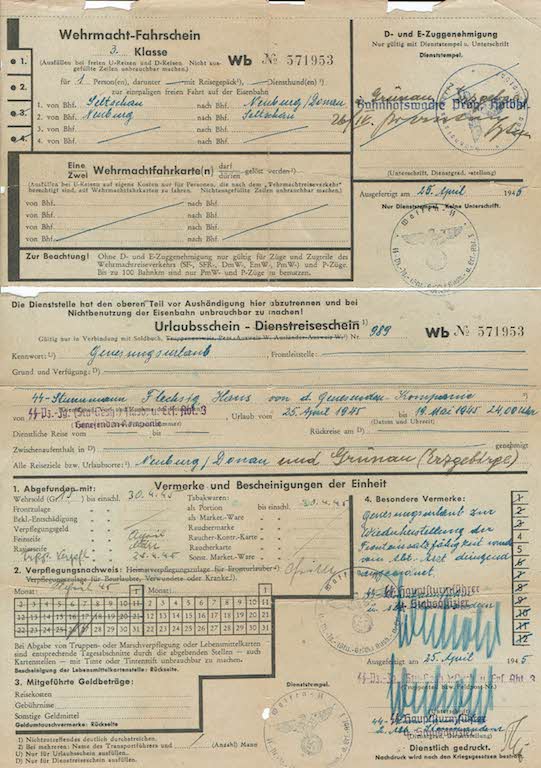 Wehrmacht-Fahrschein
3. Klasse
(Ausfüllen bei freien U-Reisen und D-Reisen. Nicht ausgefüllte Zeilen unbrauchbar machen.)
Wb № 571953
für 1 Person(en), darunter — mit Reisegepäck¹), — Diensthund(en)¹)
zur einmaligen freien Fahrt auf der Eisenbahn
1. von Bhf. Seltschan nach Bhf. Neuburg/Donau
2. von Bhf. Neuburg nach Bhf. Seltschan
3. von Bhf. nach Bhf.
4. von Bhf. nach Bhf.
D- und E-Zuggenehmigung
Nur gültig mit Dienststempel u. Unterschrift
Dienststempel.
Grünau
Bahnhofswache Prag
(Unterschrift, Dienstgrad, -stellung)
Ausgefertigt am 25. April 1945
Nur Dienststempel. Keine Unterschrift.
Waffen-SS
Eine
Zwei Wehrmachtfahrkarte(n) darf dürfen gelöst werden¹)
(Ausfüllen bei U-Reisen auf eigene Kosten nur für Personen, die nach dem „Wehrmachtreiseverkehr“
berechtigt sind, auf Wehrmachtfahrkarten zu fahren. Nichtausgefüllte Zeilen unbrauchbar machen.)
von Bhf. nach Bhf.
von Bhf. nach Bhf.
von Bhf. nach Bhf.
von Bhf. nach Bhf.
Zur Beachtung! Ohne D- und E-Zuggenehmigung nur gültig für Züge und Zugteile des
Wehrmachtreiseverkehrs (SF-, SFR-, DmW-, EmW-, PmW-) und P-Züge.
Bis zu 100 Bahnkm sind nur PmW- und P-Züge zu benutzen.
Die Dienststelle hat den oberen Teil vor Aushändigung hier abzutrennen und bei
Nichtbenutzung der Eisenbahn unbrauchbar zu machen!
Urlaubsschein - Dienstreiseschein¹)
Gültig nur in Verbindung mit Soldbuch, Nr. 989 Wb № 571953
Kennwort: U) Genesungsurlaub , Frontleitstelle:
Grund und Verfügung: D)
SS-Sturmmann Flechsig Hans von d. Genesenden-Kompanie ²)
von Genesenden-Kompanie , Urlaub vom 25. April 1945 bis 19. Mai 1945 24.00 Uhr
(Datum und Uhrzeit)
Dienstliche Reise vom bis Rückreise am D)
Zwischenaufenthalt in D) genehmigt
Alle Reiseziele bzw. Urlaubsorte: ¹) Neuburg/Donau und Grünau (Erzgebirge)
Vermerke und Bescheinigungen der Einheit
1. Abgefunden mit:
Wehrsold (Gr. 15) bis einschl. 30.4.45
Frontzulage
Bekl.-Entschädigung
Verpflegungsgeld
Feinseife
Rasierseife
Tabakwaren:
als Portion bis einschl.
als Market.-Ware
Rauchermarke
Raucher-Kontr.-Karte
Raucherkarte
Sonst. Market.-Ware
2. Verpflegungsnachweis: Heimatverpflegungszulage für Fronturlauber ¹)
Verpflegungszulage für Beurlaubte, Verwundete oder Kranke ¹)
Monat: April 45 1 Monat: 1
2 3 4 5 6 7 8 9 10 11 2 3 4 5 6 7 8 9 10 11
12 13 14 15 16 17 18 19 20 21 12 13 14 15 16 17 18 19 20 21
22 23 24 25 26 27 28 29 30 31 22 23 24 25 26 27 28 29 30 31
Bei Abgabe von Truppen- oder Marschverpflegung oder Lebensmittelkarten
sind entsprechende Tagesabschnitte durch die abgebenden Stellen — auch
Kartenstellen — mit Tinte oder Tintenstift unbrauchbar zu machen.
Bescheinigung der Lebensmittelkartenstelle: Rückseite.
3. Mitgeführte Geldbeträge:
Reisekosten
Gebührnisse
Sonstige Geldmittel
Geldumtauschvermerke: Rückseite
4. Besondere Vermerke:
Genesungsurlaub zur
Wiederherstellung der
Fronteinsatzfähigkeit wurde
vom Abt. Arzt dringend
angeordnet.
SS-Hauptsturmführer
Ausgefertigt am 25. April 1945
SS-Hauptsturmführer
Dienststempel.
Waffen-SS
1) Nichtzutreffendes deutlich durchstreichen.
2) Bei mehreren: Name des Transportführers und (Anzahl) Mann
U) Nur für Urlaubsschein ausfüllen!
D) Nur für Dienstreiseschein ausfüllen!
Dienstlich gedruckt.
Nachdruck wird nach den Kriegsgesetzen bestraft